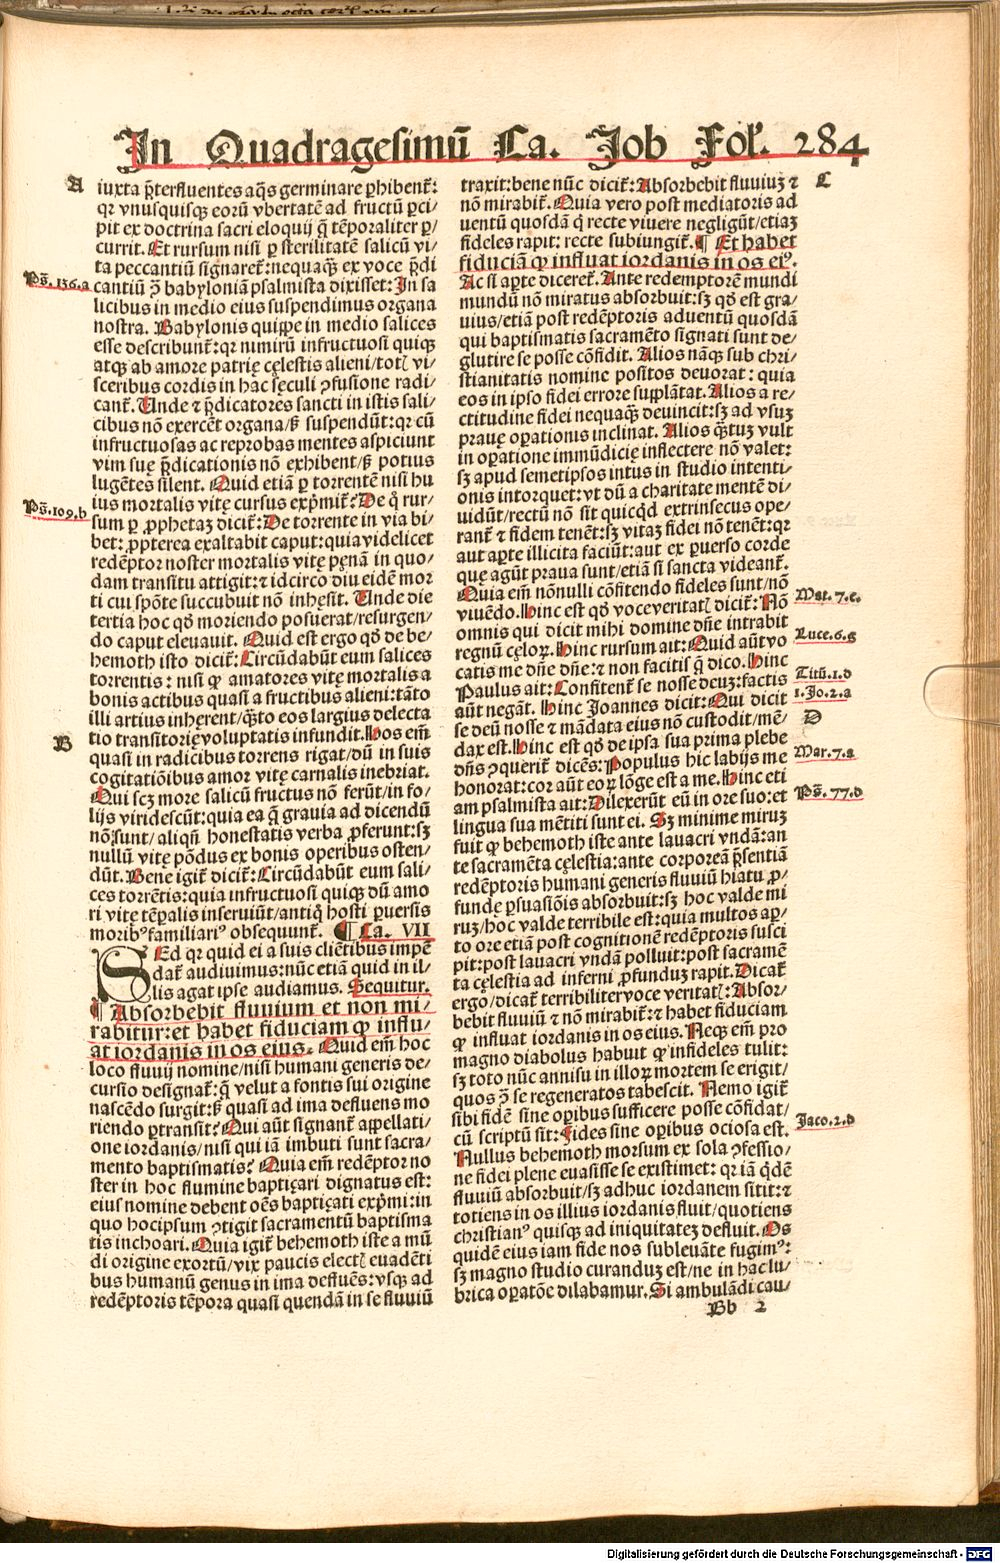 In Quadragesimū Ca. Job Fol'. 284
A
iuxta p̄terfluentes aq̄s germinare ꝑhibent᷑:
qr vnusquisqꝫ eorū vbertatē ad fructū ꝑci⸗
pit ex doctrina sacri eloquij q̄ tēꝑaliter ꝑ⸗
currit. Et rursum nisi ꝑ sterilitatē salicū vi⸗
ta peccantiū signaret᷑: nequaq̄ꝫ ex voce p̄di
Ps̄. 136.a
cantiū ꝯ̄ babyloniā psalmista dixisset: In sa
licibus in medio eius suspendimus organa
nostra. Babylonis quippe in medio salices
esse describunt᷑: qr nimirū infructuosi quiqꝫ
atqꝫ ab amore patrię cęlestis alieni/totꝭ vi⸗
sceribus cordis in hac sęculi ꝯfusione radi⸗
cant᷑. Unde ⁊ p̄dicatores sancti in istis sali⸗
cibus nō exercēt organa/ꞵ suspendūt: qr cū
infructuosas ac reprobas mentes aspiciunt
vim suę p̄dicationis nō exhibent/ꞵ potius
lugētes silent. Quid etiā ꝑ torrentē nisi hu
Ps̄. 109.b
ius mortalis vitę cursus exp̄mit᷑? De q̊ rur⸗
sum ꝑ ꝓphetaꝫ dicit᷑: De torrente in via bi⸗
bet: ꝓpterea exaltabit caput: quia videlicet
redēptor noster mortalis vitę pęnā in quo⸗
dam transitu attigit: ⁊ idcirco diu eidē mor
ti cui spōte succubuit nō inhęsit. Unde die
tertia hoc qď moriendo posuerat/resurgen⸗
do caput eleuauit. Quid est ergo qď de be⸗
hemoth isto dicit᷑: Circūdabūt eum salices
torrentis: nisi ꝙ amatores vitę mortalis a
bonis actibus quasi a fructibus alieni: tāto
illi artius inhęrent/q̄to eos largius delecta
B
tio transitorię voluptatis infundit. Hos em̄
quasi in radicibus torrens rigat/dū in suis
cogitatiōibus amor vitę carnalis inebriat.
Qui scꝫ more salicū fructus nō ferūt/in fo⸗
lijs viridescūt: quia ea q̄ grauia ad dicendū
nō sunt/aliqñ honestatis verba ꝓferunt: sꝫ
nullū vitę pōdus ex bonis operibus osten⸗
dūt. Bene igit᷑ dicit᷑: Circūdabūt eum sali⸗
ces torrētis: quia infructuosi quiqꝫ dū amo
ri vitę tēꝑalis inseruiūt/antiq̊ hosti ꝑuersis
moribꝰ familiariꝰ obsequunt᷑. ¶ Ca. VII
SEd qr quid ei a suis cliētibus impē
dat᷑ audiuimus: nūc etiā quid in il⸗
lis agat ipse audiamus. Sequitur.
¶ Absorbebit fluuium et non mi⸗
rabitur: et habet fiduciam ꝙ influ⸗
at iordanis in os eius. Quid em̄ hoc
loco fluuij nomine/nisi humani generis de⸗
cursio designat᷑: q̄ velut a fontis sui origine
nascēdo surgit: ꞵ quasi ad ima defluens mo
riendo ꝑtransit? Qui aūt signant᷑ appellati⸗
one iordanis/nisi qui iā imbuti sunt sacra⸗
mento baptismatis? Quia em̄ redēptor no
ster in hoc flumine baptiçari dignatus est:
eius nomine debent oēs baptiçati exp̄mi: in
quo hocipsum ꝯtigit sacramentū baptisma
tis inchoari. Quia igit᷑ behemoth iste a mū
di origine exortū/vix paucis electꝭ euadēti
bus humanū genus in ima defluēs: vsqꝫ ad
redēptoris tēpora quasi quendā in se fluuiū
C
traxit: bene nūc dicit᷑: Absorbebit fluuiuꝫ ⁊
nō mirabit᷑. Quia vero post mediatoris ad
uentū quosdā q̇ recte viuere negligūt/etiaꝫ
fideles rapit: recte subiungit᷑. ¶ Et habet
fiduciā ꝙ influat iordanis in os eiꝰ.
Ac si aꝑte diceret᷑. Ante redemptorē mundi
mundū nō miratus absorbuit: sꝫ qď est gra⸗
uius/etiā post redēptoris aduentū quosdā
qui baptismatis sacramēto signati sunt de⸗
glutire se posse cōfidit. Alios nāqꝫ sub chri⸗
stianitatis nomine positos deuorat: quia
eos in ipso fidei errore supplātat. Alios a re⸗
ctitudine fidei nequaq̄ꝫ deuincit: sꝫ ad vsuꝫ
prauę oꝑationis inclinat. Alios q̄tuꝫ vult
in oꝑatione immūdicię inflectere nō valet:
sꝫ apud semetipsos intus in studio intenti⸗
onis intorquet: vt dū a charitate mentē di⸗
uidūt/rectū nō sit quicqd̄ extrinsecus ope⸗
rant᷑ ⁊ fidem tenēt: sꝫ vitaꝫ fidei nō tenēt: qr
aut aꝑte illicita faciūt: aut ex ꝑuerso corde
quę agūt praua sunt/etiā si sancta videant᷑.
Quia em̄ nōnulli cōfitendo fideles sunt/nō
Mat. 7.c.
viuēdo. Hinc est qď voce veritatꝭ dicit᷑: Nō
omnis qui dicit mihi domine dn̄e intrabit
Luce. 6.g
regnū cęloꝝ. Hinc rursum ait: Quid aūt vo
catis me dn̄e dn̄e: ⁊ non facitis q̄ dico. Hinc
Titū. 1.d
Paulus ait: Confitent᷑ se nosse deuꝫ: factis
1. Jo. 2.a
aūt negāt. Hinc Joannes dicit: Qui dicit
D
se deū nosse ⁊ mādata eius nō custodit/mē⸗
dax est. Hinc est qď de ipsa sua prima plebe
Mar. 7.a
dn̄s ꝯquerit᷑ dicēs: Populus hic labijs me
honorat: cor aūt eoꝝ lōge est a me. Hinc eti
Ps̄. 77.d
am psalmista ait: Dilexerūt eū in ore suo: et
lingua sua mētiti sunt ei. Sꝫ minime miruꝫ
fuit ꝙ behemoth iste ante lauacri vndā: an
te sacramēta cęlestia: ante corporeā p̄sentiā
redēptoris humani generis fluuiū hiatu ꝓ⸗
fundę ꝑsuasiōis absorbuit: sꝫ hoc valde mi
ruꝫ/hoc valde terribile est: quia multos aꝑ⸗
to ore etiā post cognitionē redēptoris susci
pit: post lauacri vndā polluit: post sacramē
ta cęlestia ad inferni ꝓfunduꝫ rapit. Dicat᷑
ergo/dicat᷑ terribiliter voce veritatꝭ: Absor⸗
bebit fluuiū ⁊ nō mirabit᷑: ⁊ habet fiduciam
ꝙ influat iordanis in os eius. Neqꝫ em̄ pro
magno diabolus habuit ꝙ infideles tulit:
sꝫ toto nūc annisu in illoꝝ mortem se erigit/
quos ꝯ̄ se regeneratos tabescit. Nemo igit᷑
sibi fidē sine oꝑibus sufficere posse cōfidat/
Jaco. 2.d
cū scriptū sit: Fides sine oꝑibus ociosa est.
Nullus behemoth morsum ex sola ꝯfessio⸗
ne fidei plene euasisse se existimet: qr iā q̇dē
fluuiū absorbuit/sꝫ adhuc iordanem sitit: ⁊
totiens in os illius iordanis fluit/quotiens
christianꝰ quisqꝫ ad iniquitateꝫ defluit. Os
quidē eius iam fide nos subleuāte fugimꝰ:
sꝫ magno studio curanduꝫ est/ne in hac lu⸗
brica oꝑatōe dilabamur. Si ambulādi cau⸗
Bb 2
Digitalisierung gefördert durch die Deutsche Forschungsgemeinschaft - DFG